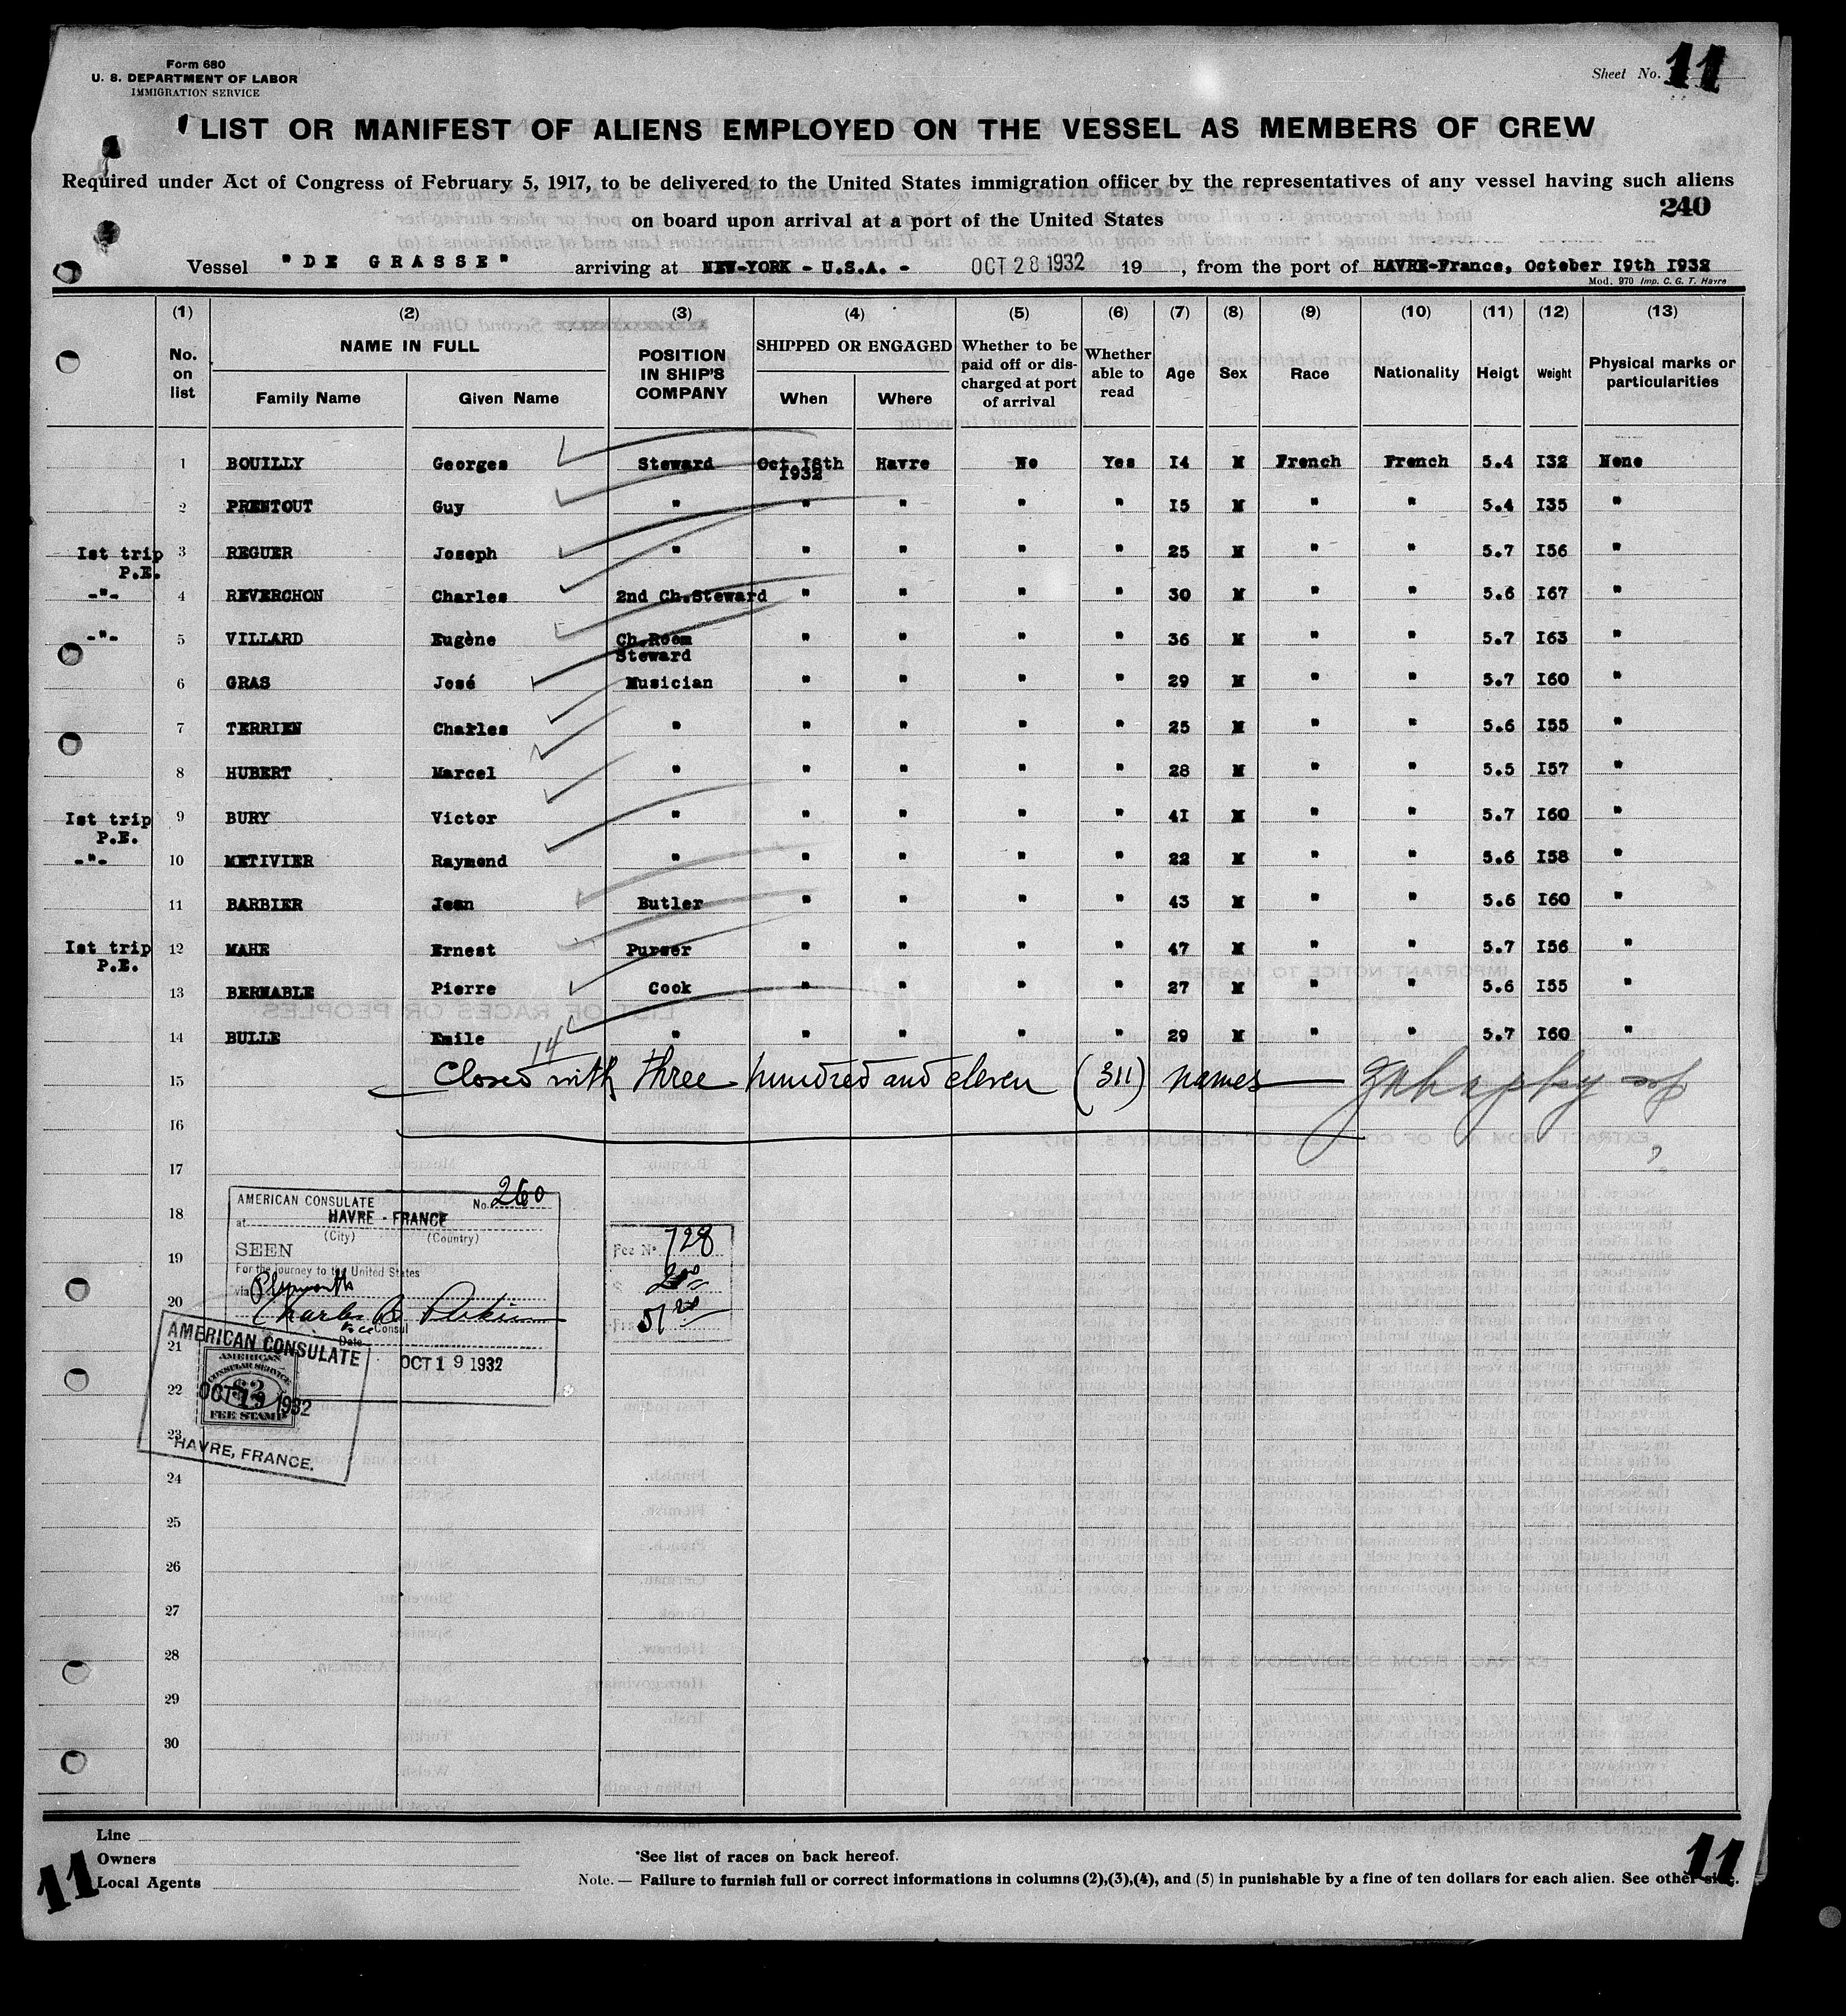 Form 680
U. S. DEPARTMENT OF LABOR
IMMIGRATION SERVICE
Sheet No. 11
LIST OR MANIFEST OF ALIENS EMPLOYED ON THE VESSEL AS MEMBERS OF CREW
Required under Act of Congress of February 5, 1917, to be delivered to the United States immigration officer by the representatives of any vessel having such aliens
on board upon arrival at a port of the United States
240
Vessel "DE GRASSE" arriving at NEW-YORK - U.S.A. - OCT 28 1932 19 , from the port of HAVRE-France, October I9th I932
Mod. 970 Imp. C. G. T. Havre
(1) (2) (3) (4) (5) (6) (7) (8) (9) (10) (11) (12) (13)
No. on list NAME IN FULL Family Name Given Name POSITION IN SHIP'S COMPANY SHIPPED OR ENGAGED When Where Whether to be paid off or discharged at port of arrival Whether able to read Age Sex Race Nationality Heigt Weight Physical marks or particularities
1 BOUILLY Georges Steward Oct I8th I932 Havre No Yes I4 M French French 5.4 I32 None
2 PRENTOUT Guy " " " " " I5 M " " 5.4 I35 "
Ist trip P.E. 3 REGUER Joseph " " " " " 25 M " " 5.7 I56 "
-"- 4 REVERCHON Charles 2nd Ch.Steward " " " " 30 M " " 5.6 I67 "
-"- 5 VILLARD Eugène Ch.Room Steward " " " " 36 M " " 5.7 I63 "
6 GRAS José Musician " " " " 29 M " " 5.7 I60 "
7 TERRIEN Charles " " " " " 25 M " " 5.6 I55 "
8 HUBERT Marcel " " " " " 28 M " " 5.5 I57 "
Ist trip P.E. 9 BURY Victor " " " " " 4I M " " 5.7 I60 "
-"- 10 METIVIER Raymond " " " " " 22 M " " 5.6 I58 "
11 BARBIER Jean Butler " " " " 43 M " " 5.6 I60 "
Ist trip P.E. 12 MAHE Ernest Purser " " " " 47 M " " 5.7 I56 "
13 BERNABLE Pierre Cook " " " " 27 M " " 5.6 I55 "
14 BULLE Emile " " " " " 29 M " " 5.7 I60 "
14
15 Closed with three hundred and eleven (311) names
16
17
18
19
20
21
22
23
24
25
26
27
28
29
30
AMERICAN CONSULATE No. 260
at HAVRE - FRANCE
(City) (Country)
SEEN
For the journey to the United States
via Plymouth
Charles B. Perkins
Vice Consul
Date OCT 19 1932
Fee No 728
$ 2.00
Frs. 51.20
AMERICAN CONSULATE
AMERICAN
CONSULAR SERVICE
$2
FEE STAMP
OCT 19 1932
HAVRE, FRANCE.
Line
Owners
Local Agents
*See list of races on back hereof.
Note. — Failure to furnish full or correct informations in columns (2),(3),(4), and (5) in punishable by a fine of ten dollars for each alien. See other side.
11
11